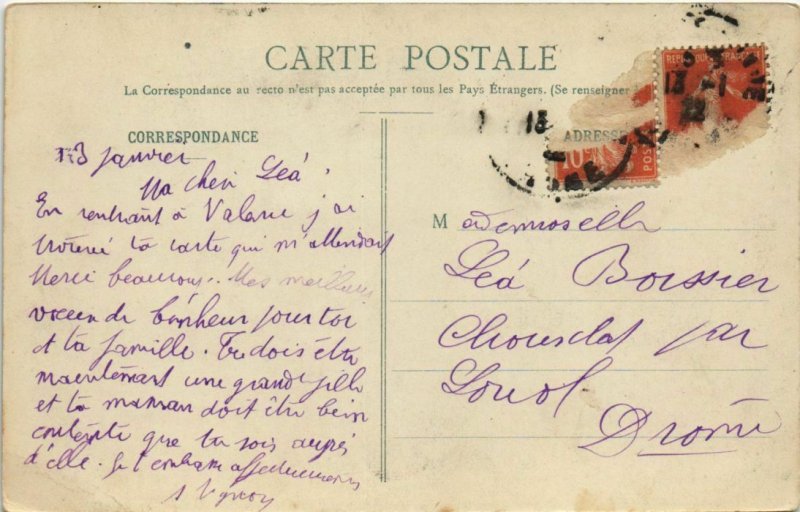 CARTE POSTALE
La Correspondance au recto n'est pas acceptée par tous les Pays Étrangers. (Se renseigner
CORRESPONDANCE
ADRESSE
13 janvier
Ma cheri Léa,
En rentrant à Valance j'ai
trouvé ta carte qui m'attendait
Merci beaucoup.. Mes meilleurs
voeux de bonheur pour toi
et ta famille. Tu dois être
maintenant une grande fille
et ta maman doit être bien
contente que tu sois auprès
d'elle. Je t'embrasse affectueusement
Mademoiselle
Léa Boissier
par
Drôme
10c
POSTES
13 -1
22
13